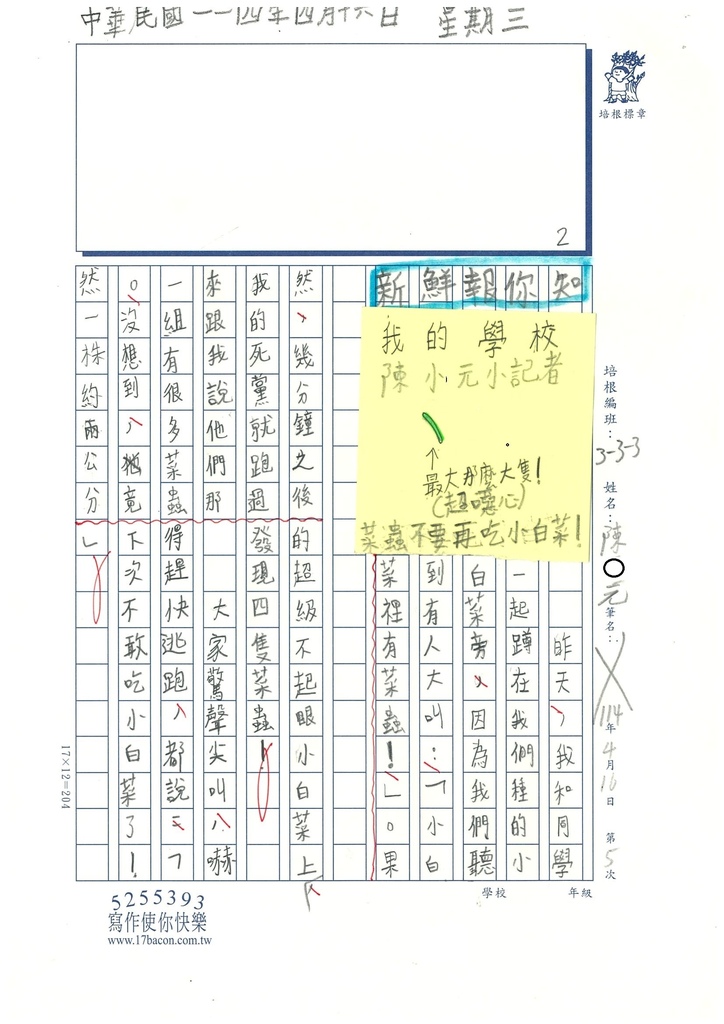 中華民國一一四年四月十六日 星期三
培根標章
2
新鮮報你知
我的學校
陳小元小記者
↑
最大那麼大隻!
(超噁心)
菜蟲不要再吃小白菜!
昨天,我和同學
一起蹲在我們種的小
白菜旁,因為我們聽
到有人大叫:「小白
菜裡有菜蟲!」。果
然,幾分鐘之後
我的死黨就跑過
來跟我說他們那
一組有很多菜蟲
。沒想到,竟
然一株約兩公分
的超級不起眼小白菜上
發現四隻菜蟲!
大家驚聲尖叫,嚇
得趕快逃跑,都說:「
下次不敢吃小白菜了!
」
培根編班:3-3-3 姓名:陳○元 筆名:
114年4月16日 第5次
學校 年級
17×12=204
5255393
寫作使你快樂
www.17bacon.com.tw